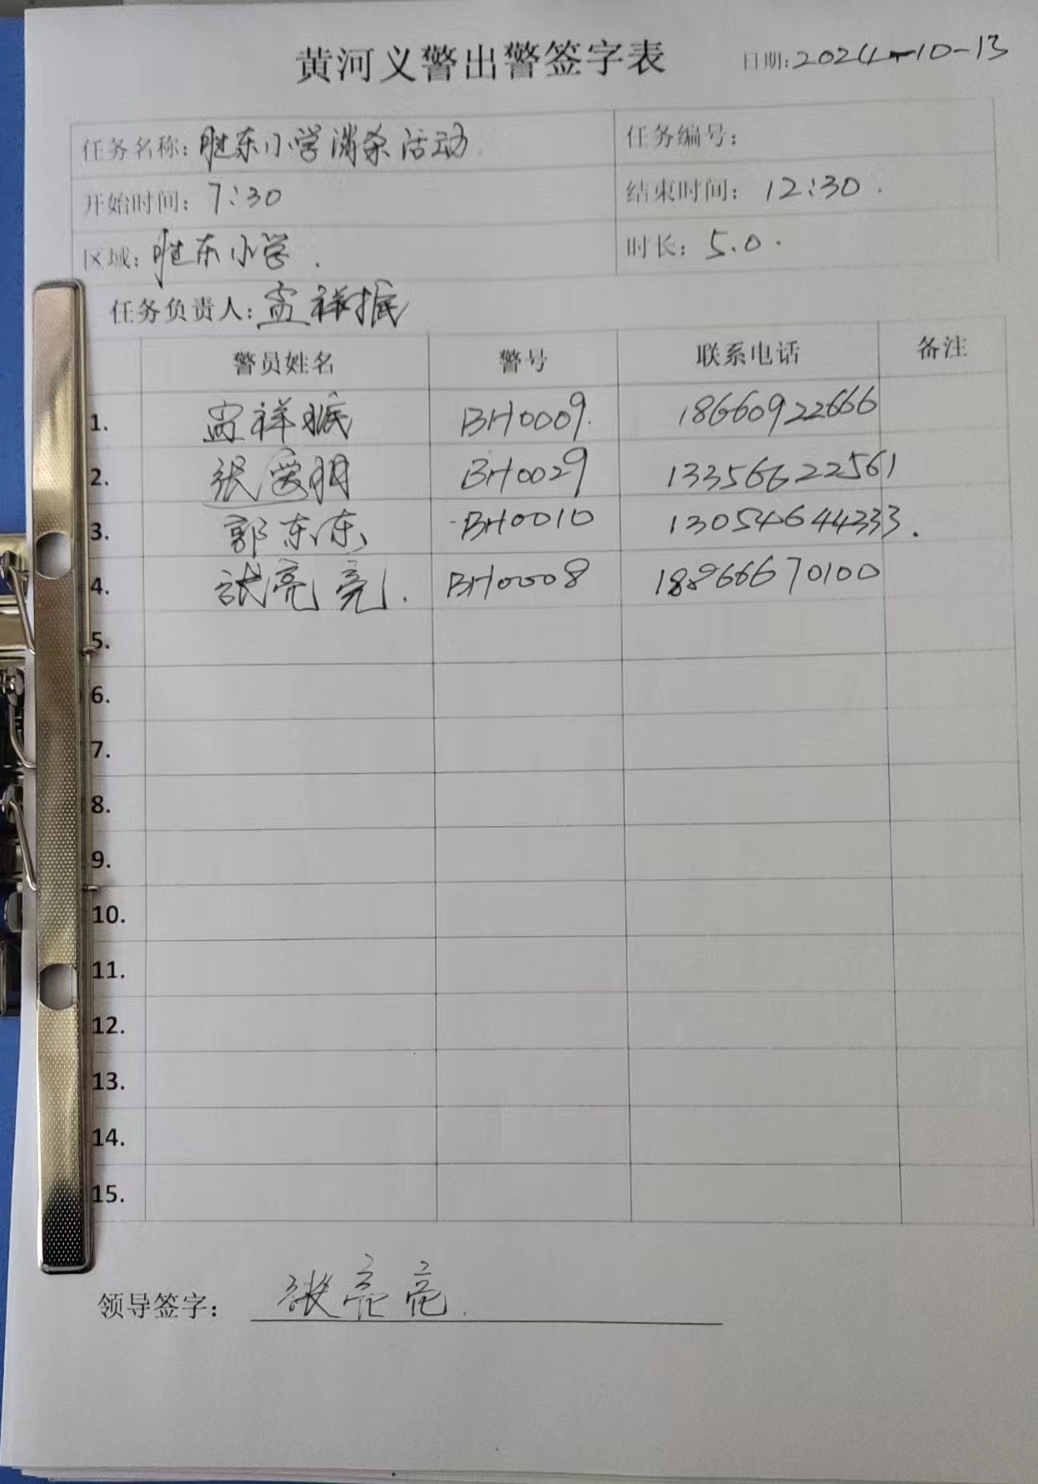 黄河义警出警签字表 日期:2024-10-13
任务名称:胜东小学消杀活动 任务编号:
开始时间:7:30 结束时间:12:30.
区域:胜东小学. 时长:5.0.
任务负责人:孟祥振
警员姓名 警号 联系电话 备注
1. 孟祥振 BH0009. 18660922666
2. 张爱明 BH0029 13356622561
3. 郭东东 BH0010 13054644333.
4. 张亮亮. BH0008 18866670100
5.
6.
7.
8.
9.
10.
11.
12.
13.
14.
15.
领导签字: 张亮亮.